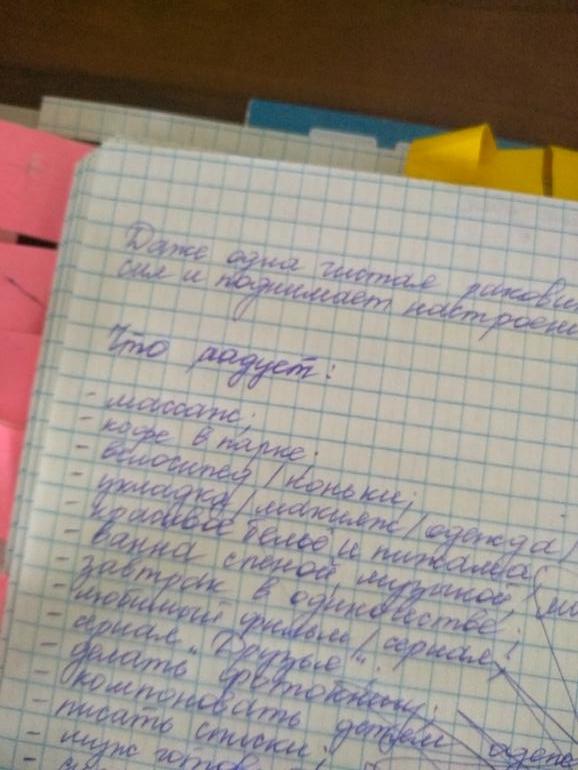 Даже одна чистая ракови
сил и поднимает настроени
Что радует:
- массаж;
- кофе в парке;
- велосипед / коньки;
- укладка / макияж / одежда /
- красивое белье и пижама;
- ванна с пеной, музыкой,
- завтрак в одиночестве;
- любимый фильм / сериал;
- сериал "Друзья";
- делать фотокниги;
- компоновать детям одеж
- писать списки;
- муж готов